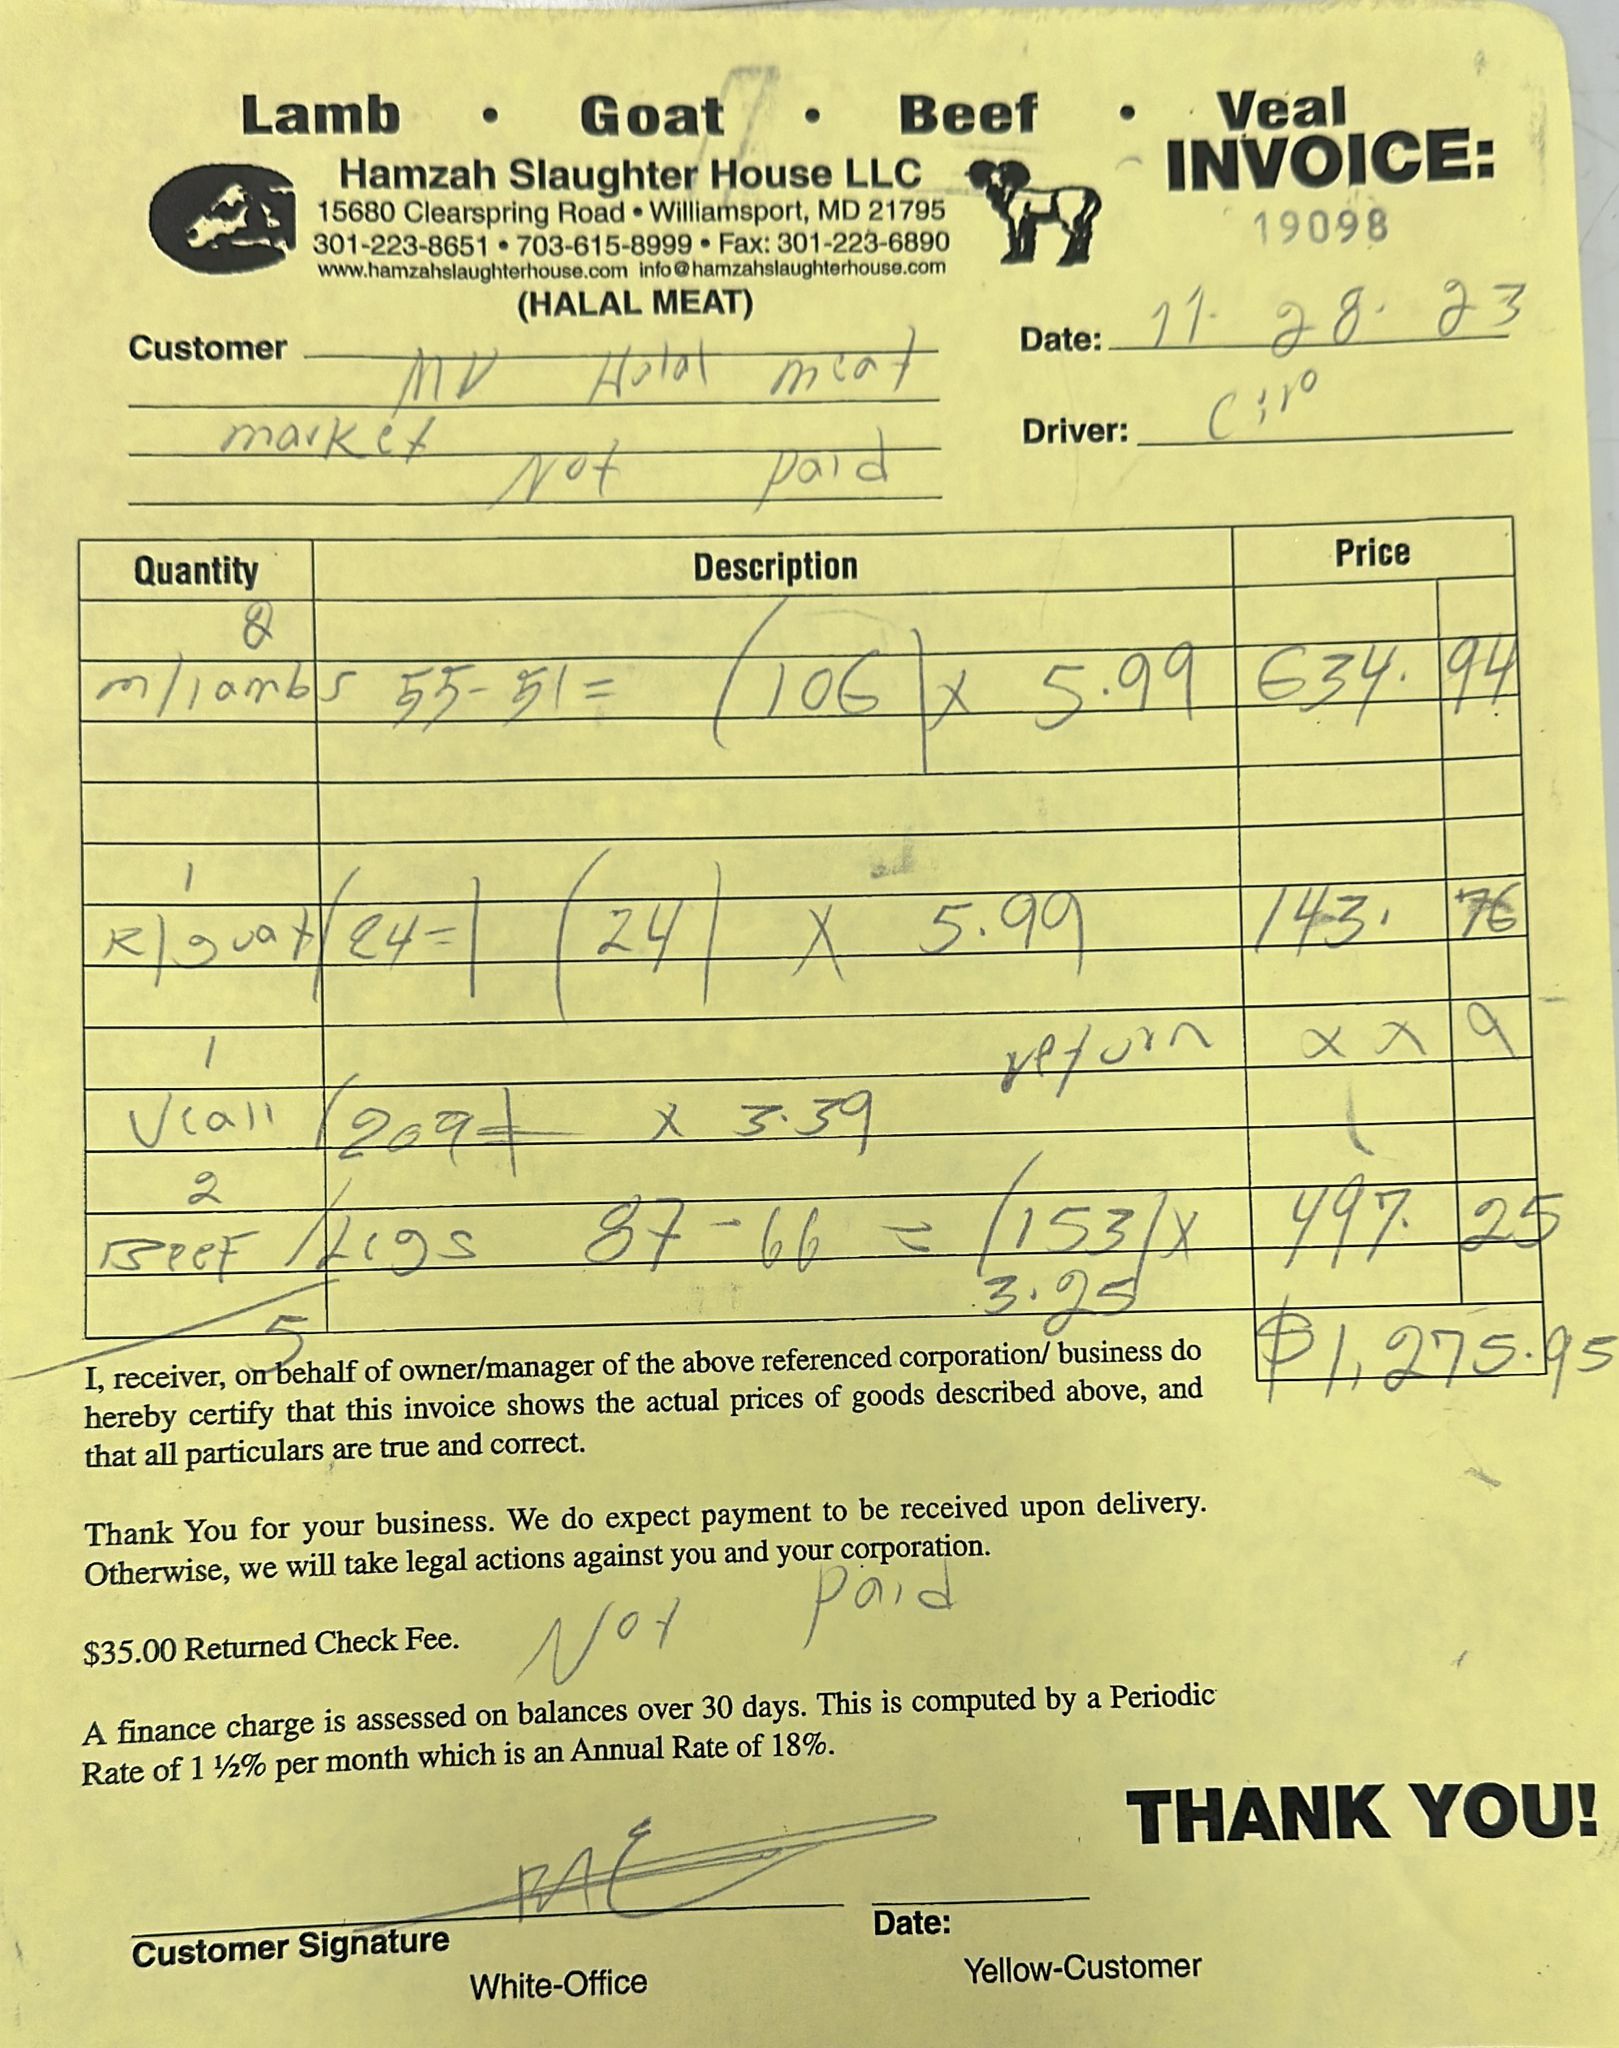 Lamb • Goat • Beef • Veal
INVOICE:
19098
Hamzah Slaughter House LLC
15680 Clearspring Road • Williamsport, MD 21795
301-223-8651 • 703-615-8999 • Fax: 301-223-6890
www.hamzahslaughterhouse.com info@hamzahslaughterhouse.com
(HALAL MEAT)
Date: 11. 28. 23
Customer
Halal meat
market
Driver: Ciro
Not paid
Quantity Description Price
2
m/lambs 55-51= (106) x 5.99 634. 94
1
R/goat (24=) (24) x 5.99 143. 76
1 return x x 9
Veall (209= x 3.39
2
Beef / Legs 87-66 = (153) x 497. 25
3.25
5
$1,275.95
I, receiver, on behalf of owner/manager of the above referenced corporation/ business do
hereby certify that this invoice shows the actual prices of goods described above, and
that all particulars are true and correct.
Thank You for your business. We do expect payment to be received upon delivery.
Otherwise, we will take legal actions against you and your corporation.
Not paid
$35.00 Returned Check Fee.
A finance charge is assessed on balances over 30 days. This is computed by a Periodic
Rate of 1 ½% per month which is an Annual Rate of 18%.
THANK YOU!
Customer Signature
Date:
White-Office
Yellow-Customer